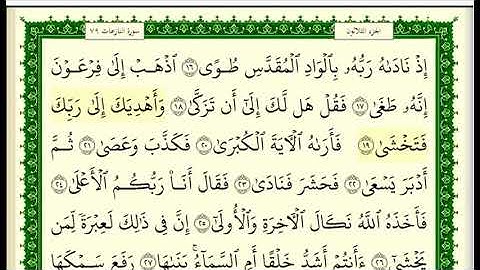 سورة النازعات ٧٩
الجزء الثلاثون
إِذْ نَادَىٰهُ رَبُّهُۥ بِٱلْوَادِ ٱلْمُقَدَّسِ طُوًى ١٦ ٱذْهَبْ إِلَىٰ فِرْعَوْنَ
إِنَّهُۥ طَغَىٰ ١٧ فَقُلْ هَل لَّكَ إِلَىٰٓ أَن تَزَكَّىٰ ١٨ وَأَهْدِيَكَ إِلَىٰ رَبِّكَ
فَتَخْشَىٰ ١٩ فَأَرَىٰهُ ٱلْأَيَةَ ٱلْكُبْرَىٰ ٢٠ فَكَذَّبَ وَعَصَىٰ ٢١ ثُمَّ
أَدْبَرَ يَسْعَىٰ ٢٢ فَحَشَرَ فَنَادَىٰ ٢٣ فَقَالَ أَنَا۠ رَبُّكُمُ ٱلْأَعْلَىٰ ٢٤
فَأَخَذَهُ ٱللَّهُ نَكَالَ ٱلْأَخِرَةِ وَٱلْأُولَىٰٓ ٢٥ إِنَّ فِى ذَٰلِكَ لَعِبْرَةً لِّمَن
يَخْشَىٰٓ ٢٦ ءَأَنتُمْ أَشَدُّ خَلْقًا أَمِ ٱلسَّمَآءُ ۚ بَنَىٰهَا ٢٧ رَفَعَ سَمْكَهَا